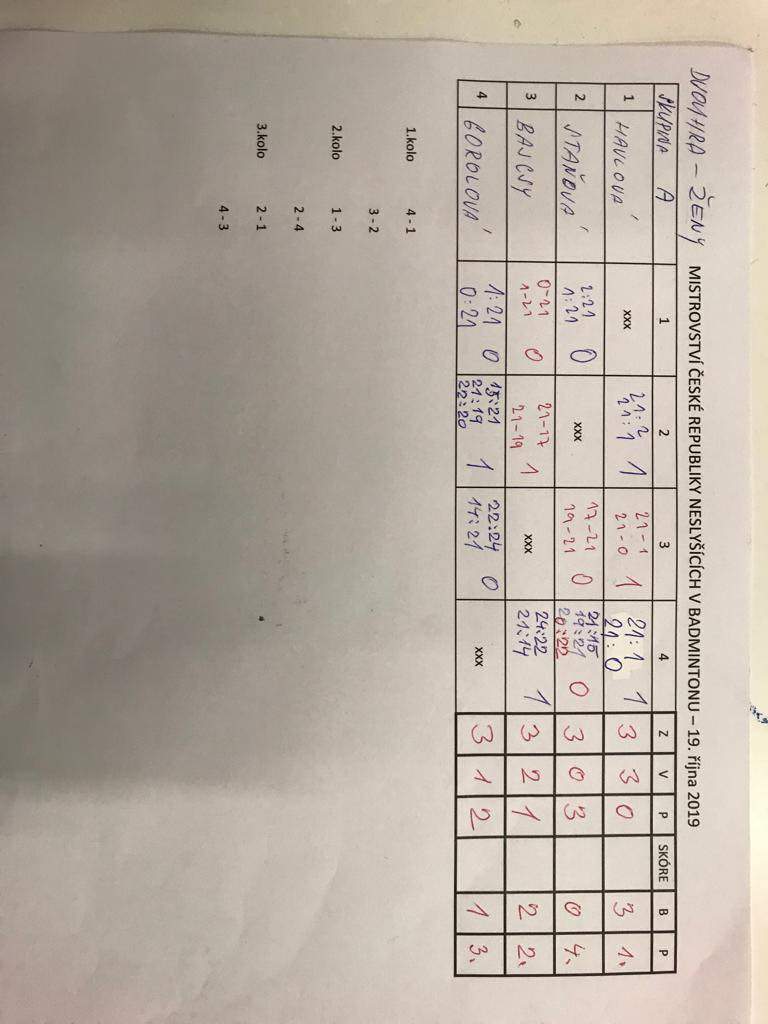 DVOUHRA – ŽENY MISTROVSTVÍ ČESKÉ REPUBLIKY NESLYŠÍCÍCH V BADMINTONU – 19. října 2019
SKUPINA A 1 2 3 4 Z V P SKÓRE B P
1 HAVLOVÁ xxx 21:2 21:1 1 21-1 21-0 1 21:1 21:0 1 3 3 0 3 1.
2 STAŇOVÁ 2:21 1:21 0 xxx 17-21 19-21 0 21:15 19:21 20:22 0 3 0 3 0 4.
3 BAJCSY 0-21 1-21 0 21-17 21-19 1 xxx 24:22 21:14 1 3 2 1 2 2.
4 GOROLOVÁ 1:21 0:21 0 15:21 21:19 22:20 1 22:24 14:21 0 xxx 3 1 2 1 3.
1.kolo 4 - 1
3 - 2
2.kolo 1 - 3
2 - 4
3.kolo 2 - 1
4 - 3